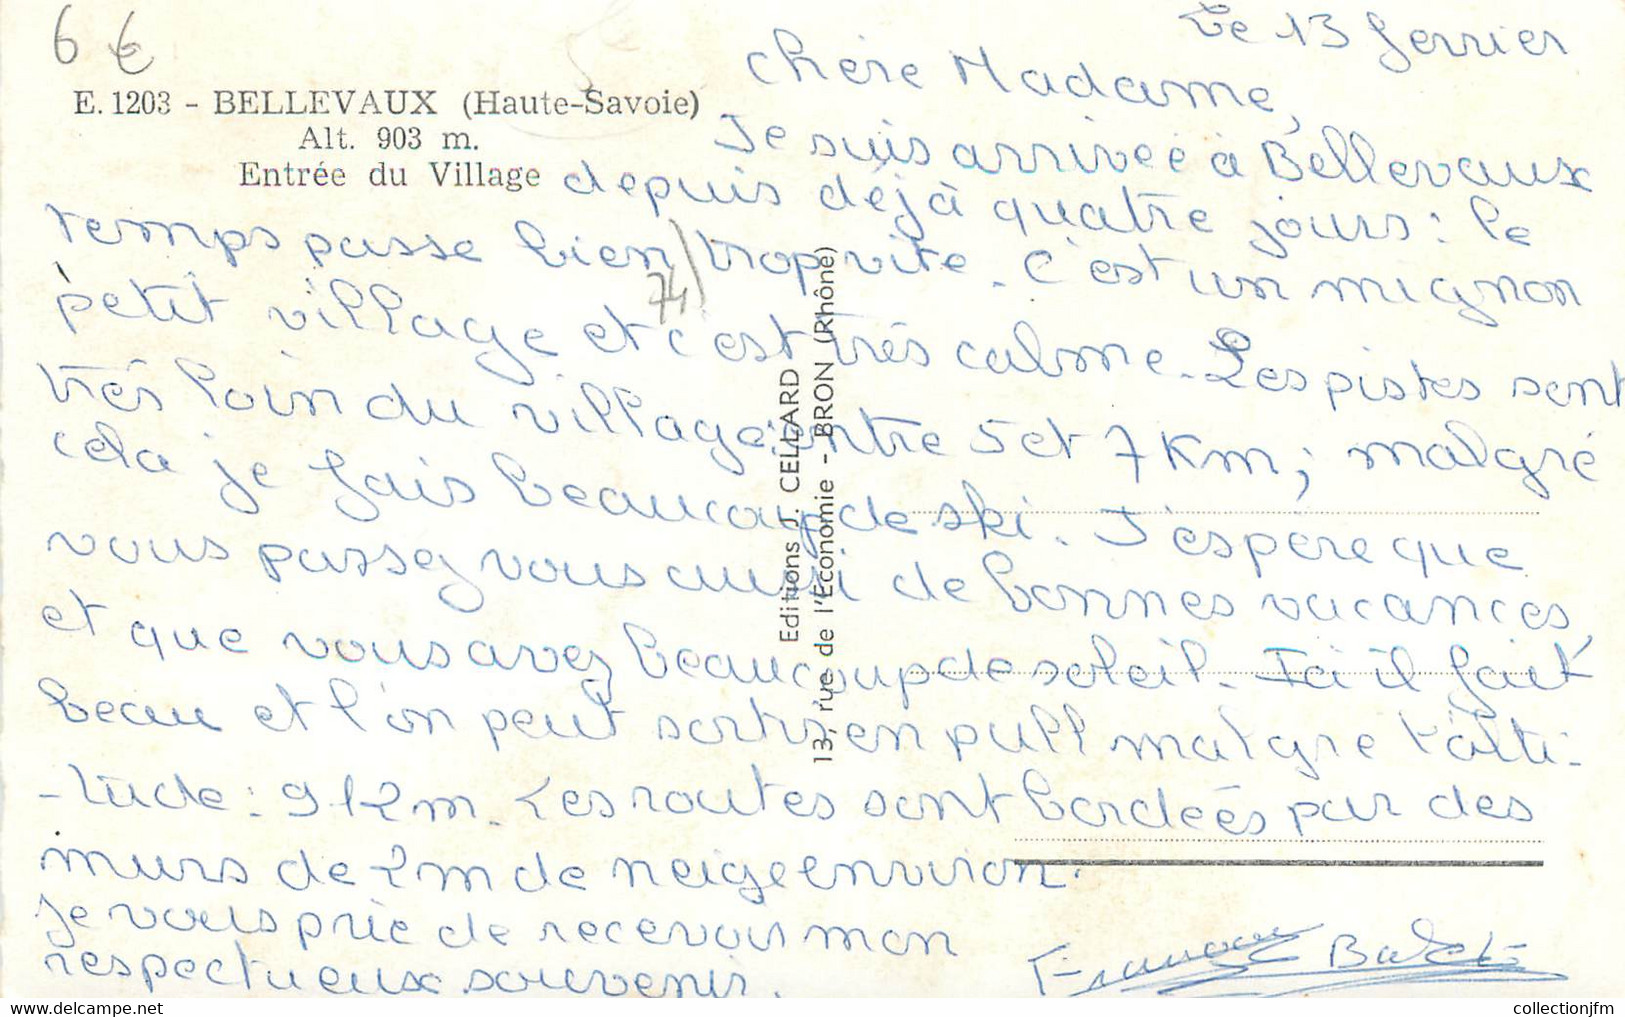 6 €
E. 1203 - BELLEVAUX (Haute-Savoie)
Alt. 903 m.
Entrée du Village
Le 13 fevrier
Chère Madame,
Je suis arrivée à Bellevaux
depuis déjà quatre jours : le
temps passe bien trop vite. C'est un mignon
petit village et c'est très calme. Les pistes sont
très loin du village : entre 5 et 7 Km ; malgré
cela je fais beaucoup de ski. J'espère que
vous passez vous aussi de bonnes vacances,
et que vous avez beaucoup de soleil. Ici il fait
beau et l'on peut sortir en pull malgre l'alti-
-tude : 912m. Les routes sont bordées par des
murs de 2m de neige environ.
Je vous prie de recevoir mon
respectueux souvenir.
74)
Editions J. CELLARD
13, rue de l'Économie - BRON (Rhône)
collectionjfm